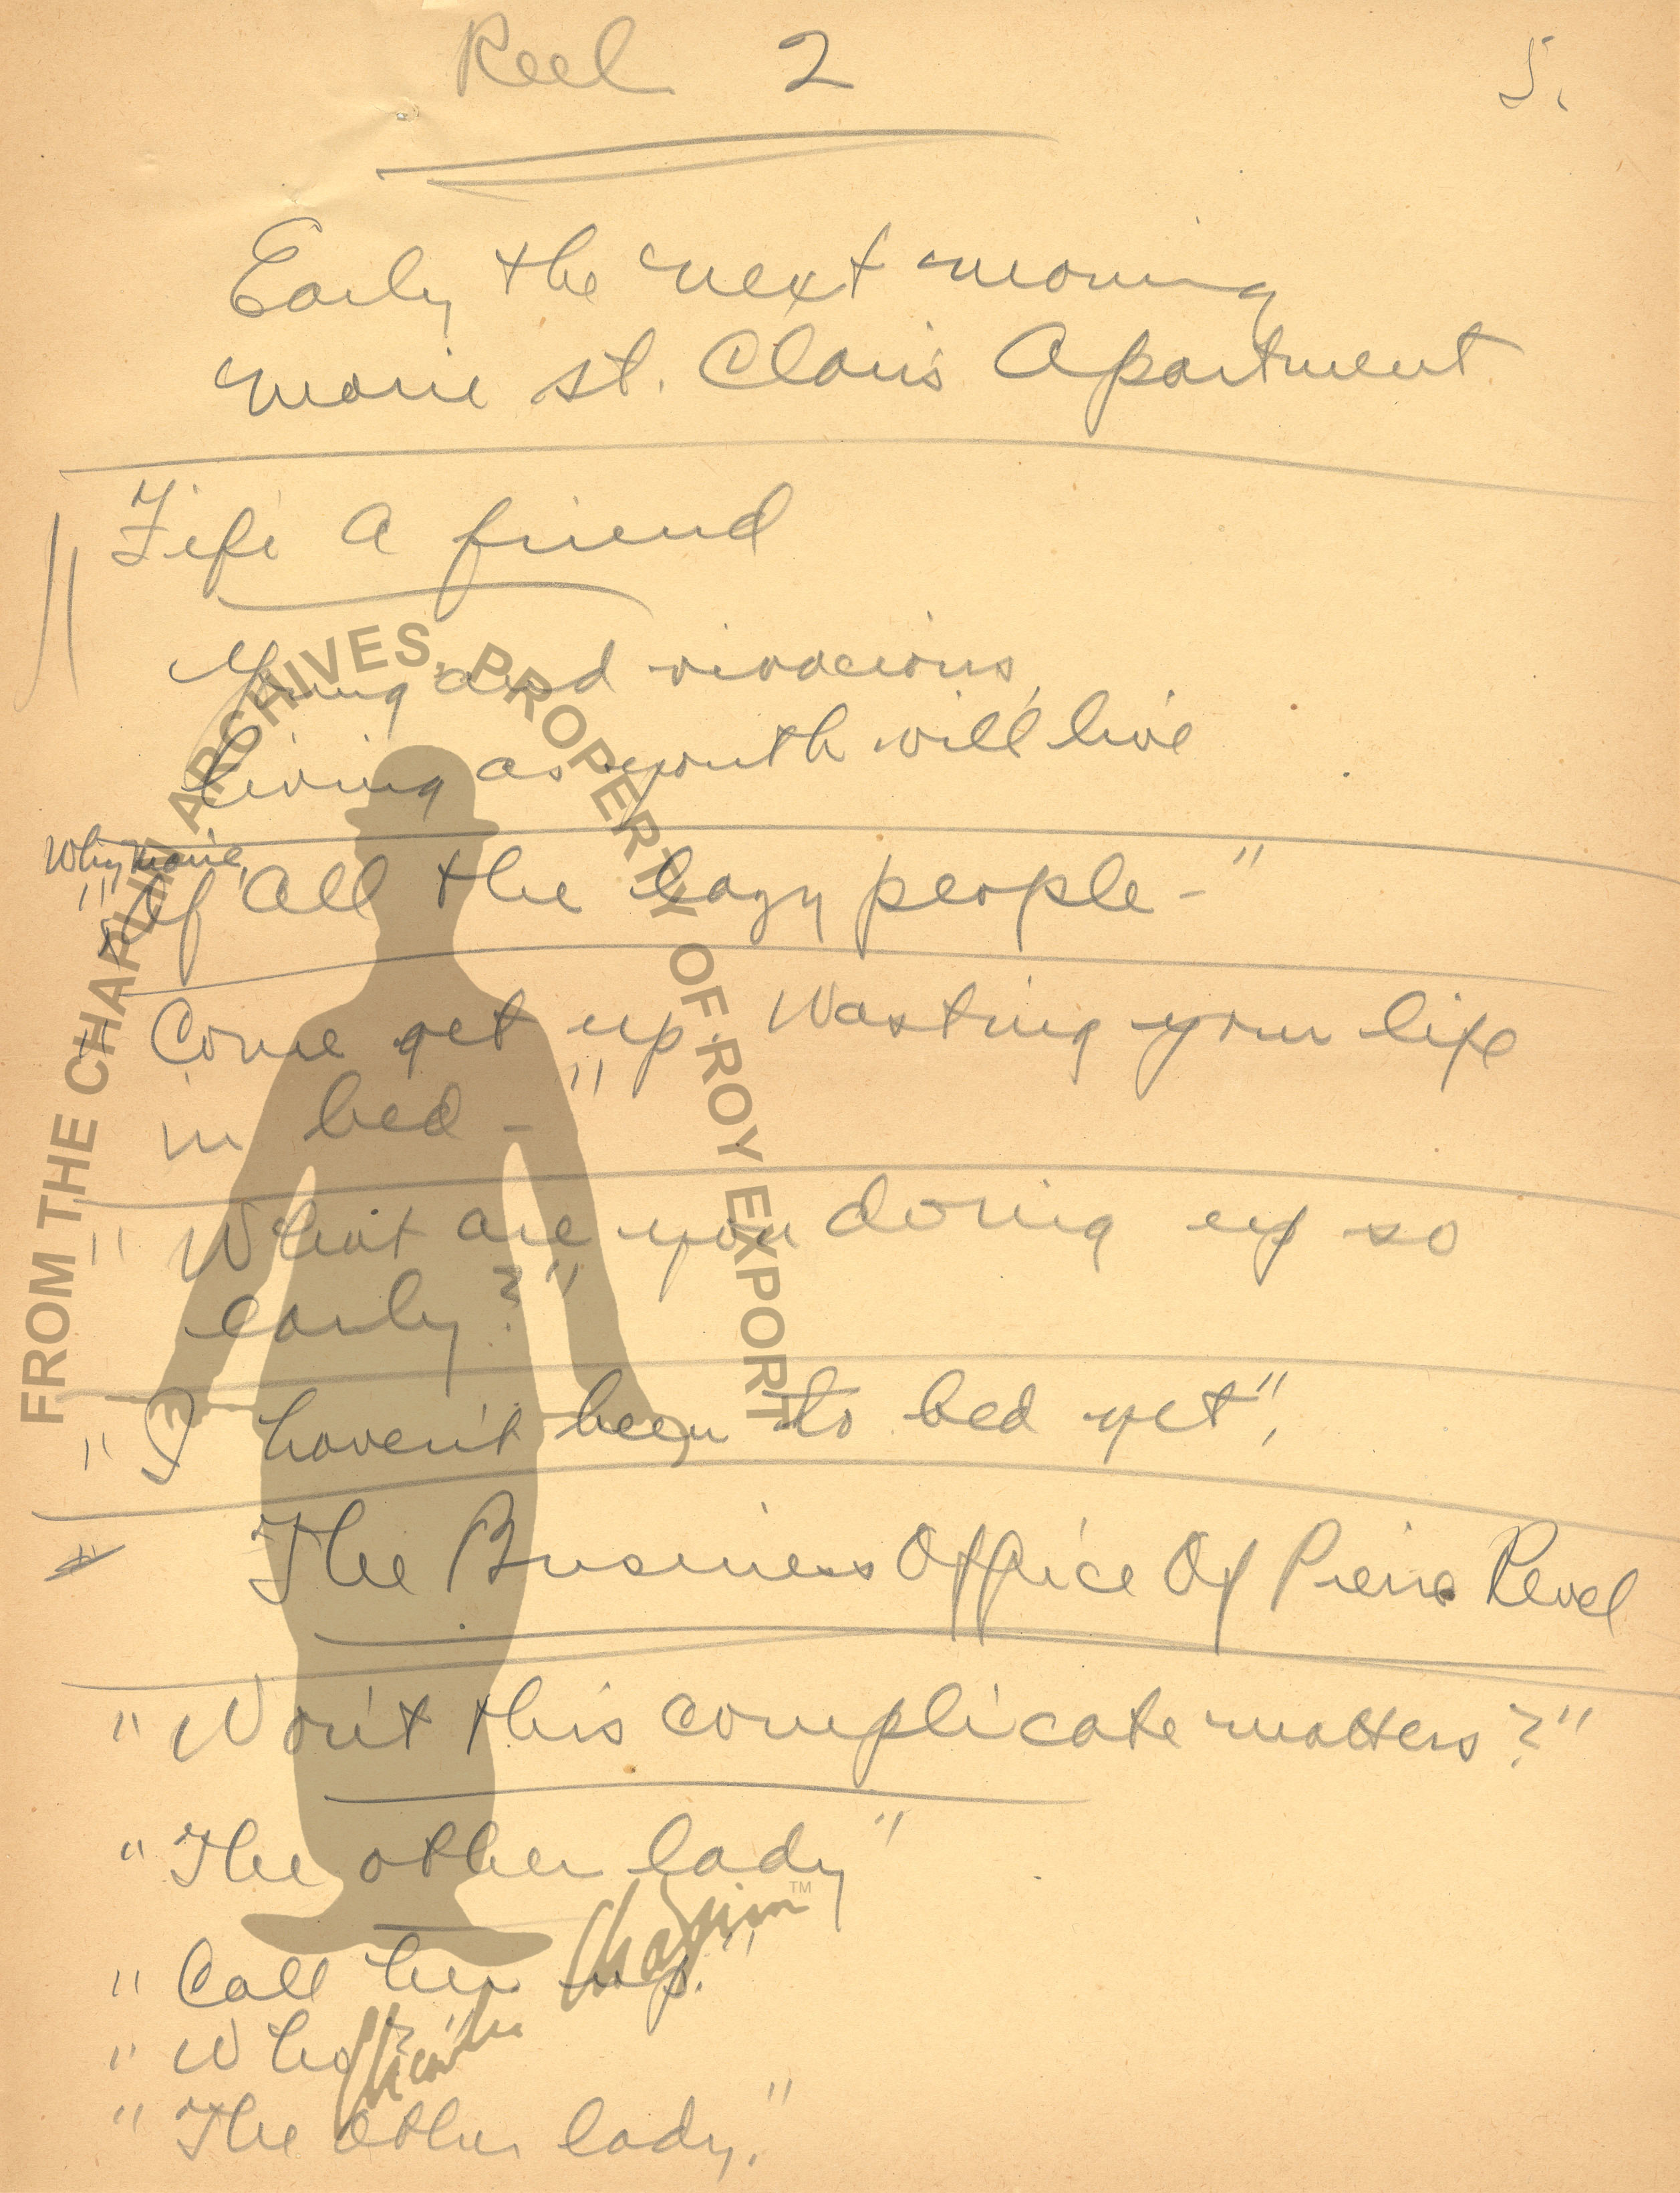 Reel 2
5.
Early the next morning
Marie St. Clair's Apartment
Fifi A friend
Young and vivacious,
Living as youth will live
Why Marie,
"Of all the lazy people-"
"Come get up. Wasting your life
in bed-"
"What are you doing up so
early?"
"I haven't been to bed yet".
The Business Office Of Pierre Revel
"Won't this complicate matters?"
"The other lady"
"Call her up."
"Who?"
"The other lady."
FROM THE CHAPLIN ARCHIVES, PROPERTY OF ROY EXPORT
Charlie Chaplin™